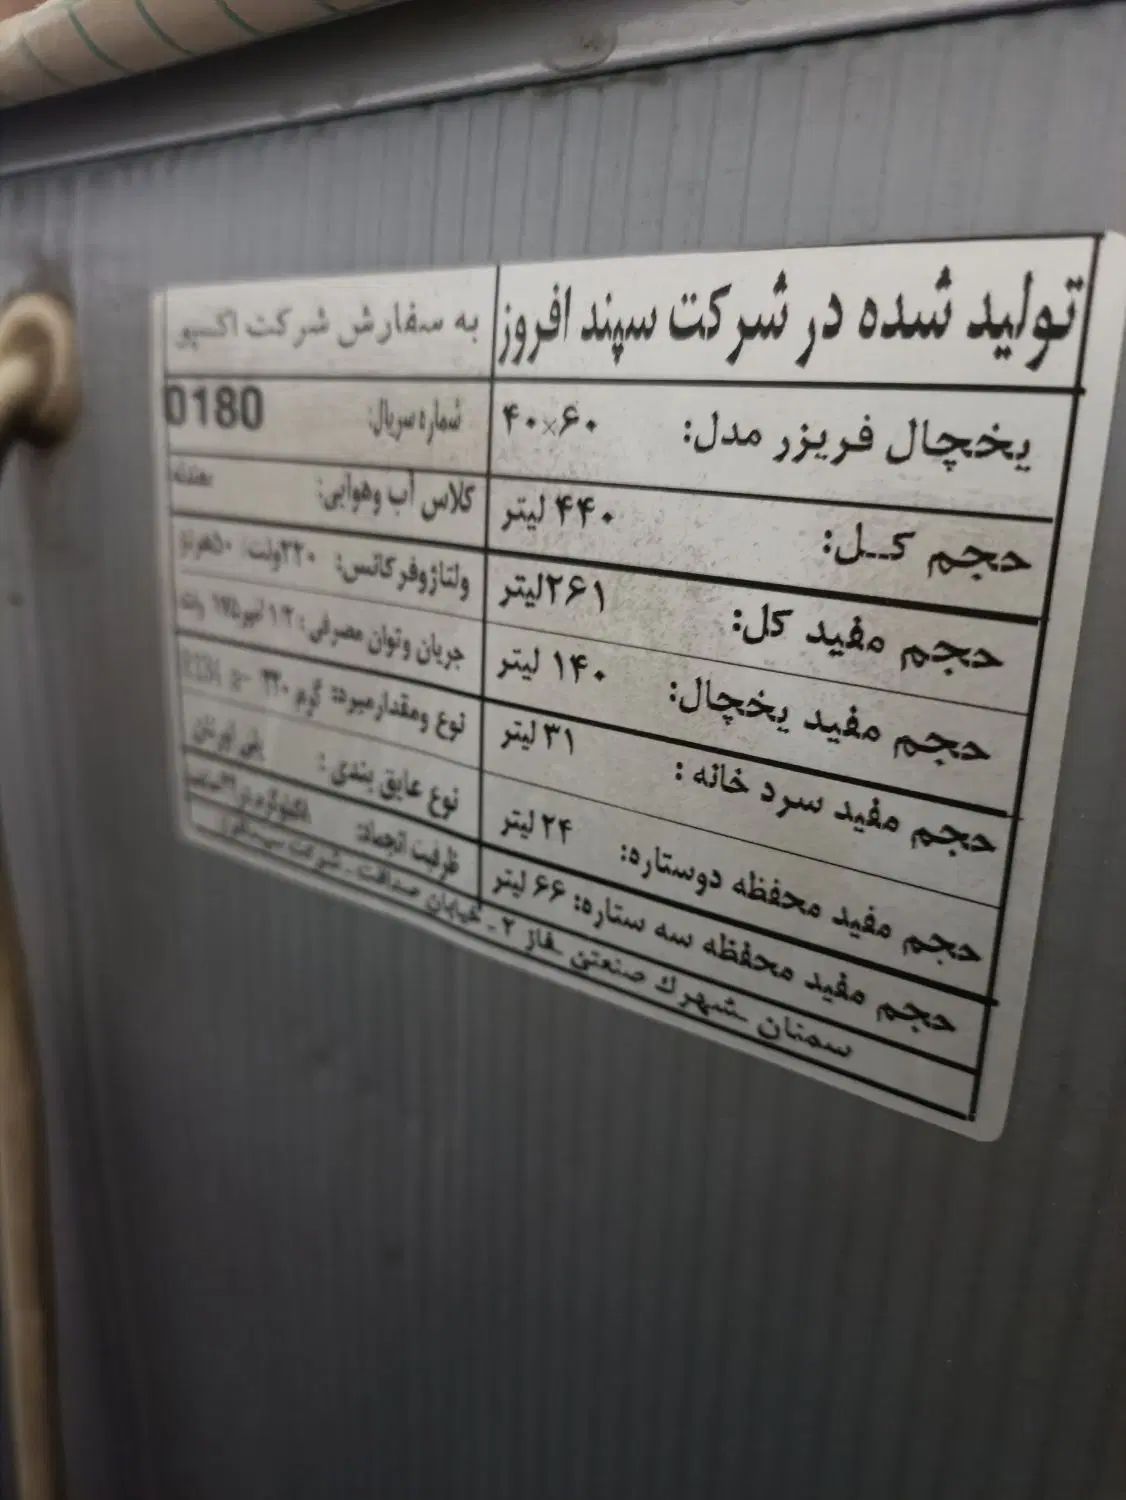 تولید شده در شرکت سپند افروز
به سفارش شرکت اکسپو
یخچال فریزر مدل: ۴۰×۶۰
شماره سریال: 0180
حجم کــل: ۴۴۰ لیتر
کلاس آب وهوایی: معتدله
حجم مفید کل: ۲۶۱لیتر
ولتاژوفرکانس: ۲۲۰ولت/ ۵۰هرتز
حجم مفید یخچال: ۱۴۰ لیتر
جریان وتوان مصرفی:
حجم مفید سرد خانه : ۳۱ لیتر
نوع ومقدارمبرد: گرم
حجم مفید محفظه دوستاره: ۲۴ لیتر
نوع عایق بندی : پلی یورتان
حجم مفید محفظه سه ستاره: ۶۶ لیتر
ظرفیت انجماد:
سمنان ـ شهرك صنعتی ـ فاز ۲ ـ خیابان صداقت ـ شرکت